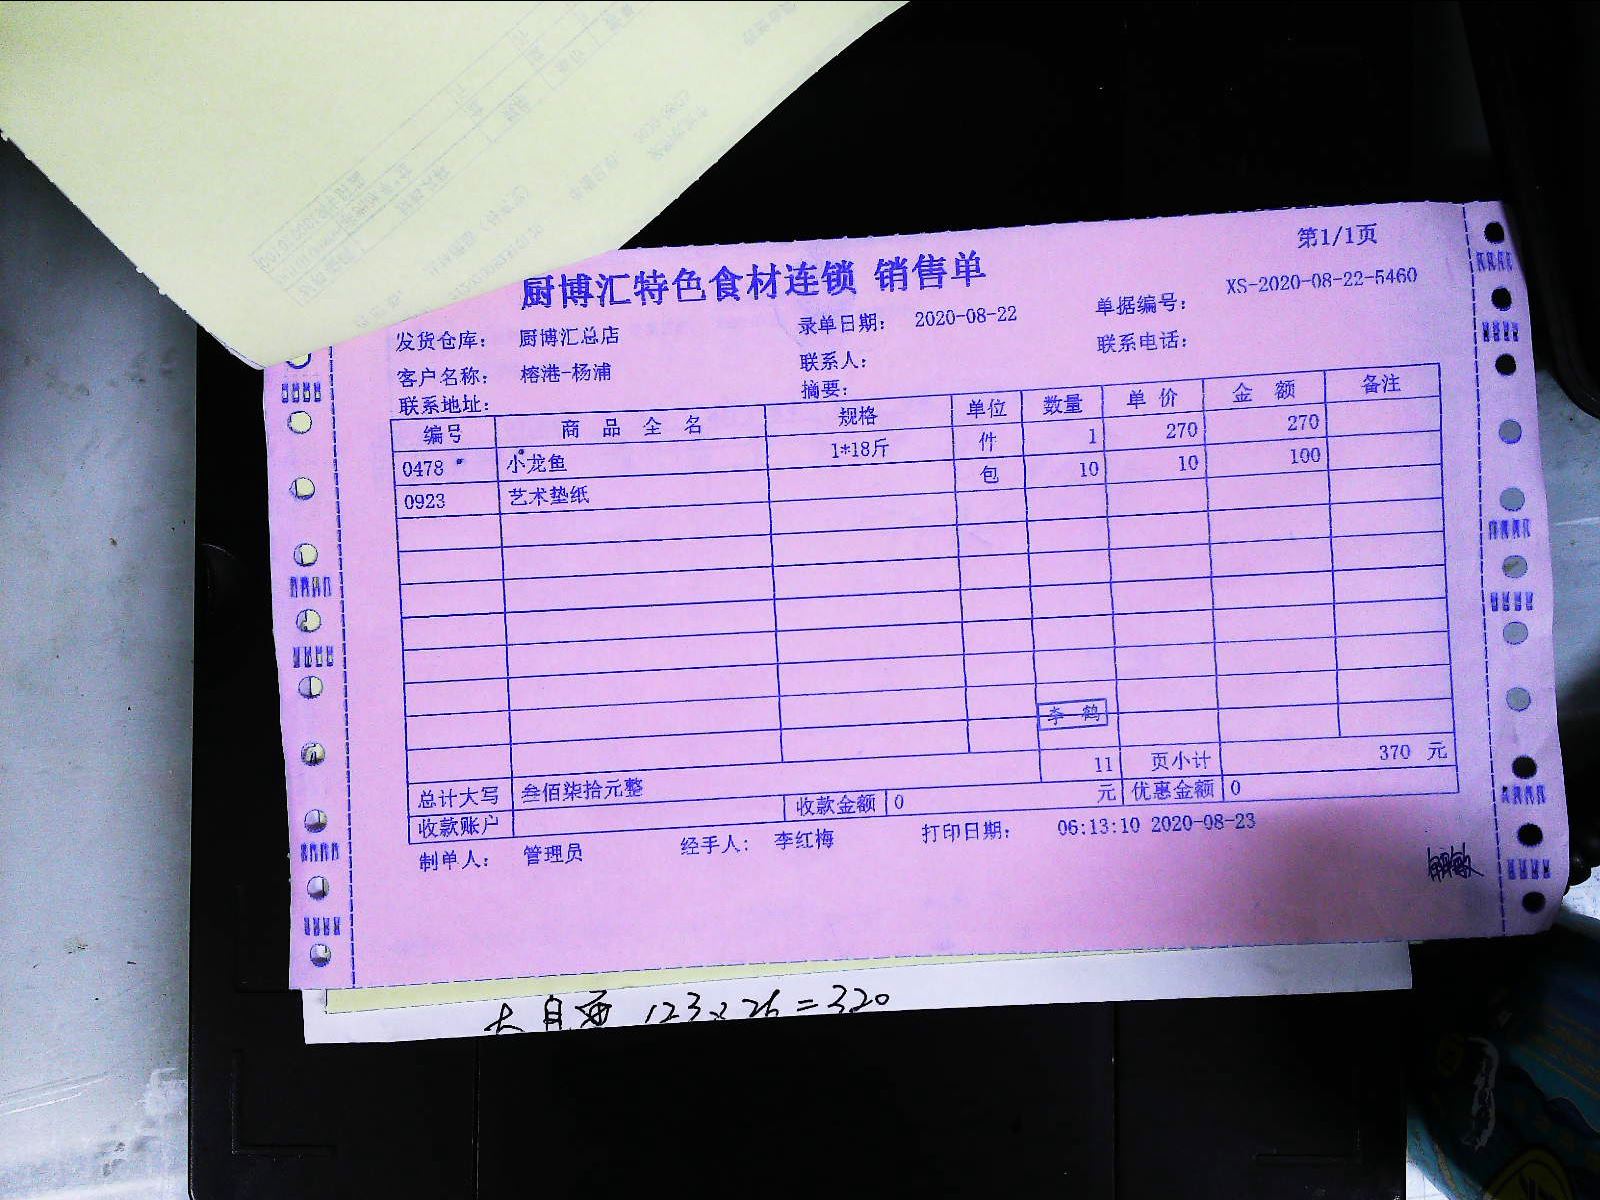 第1/1页
厨博汇特色食材连锁 销售单
发货仓库： 厨博汇总店 录单日期： 2020-08-22 单据编号： XS-2020-08-22-5460
客户名称： 榕港-杨浦 联系人： 联系电话：
联系地址： 摘要：
编号 商 品 全 名 规格 单位 数量 单 价 金 额 备注
0478 小龙鱼 1*18斤 件 1 270 270
0923 艺术垫纸 包 10 10 100
李 鹤
总计大写 叁佰柒拾元整 11 页小计 370 元
收款账户 收款金额 0 元 优惠金额 0
制单人： 管理员 经手人： 李红梅 打印日期： 06:13:10 2020-08-23
123×26=320